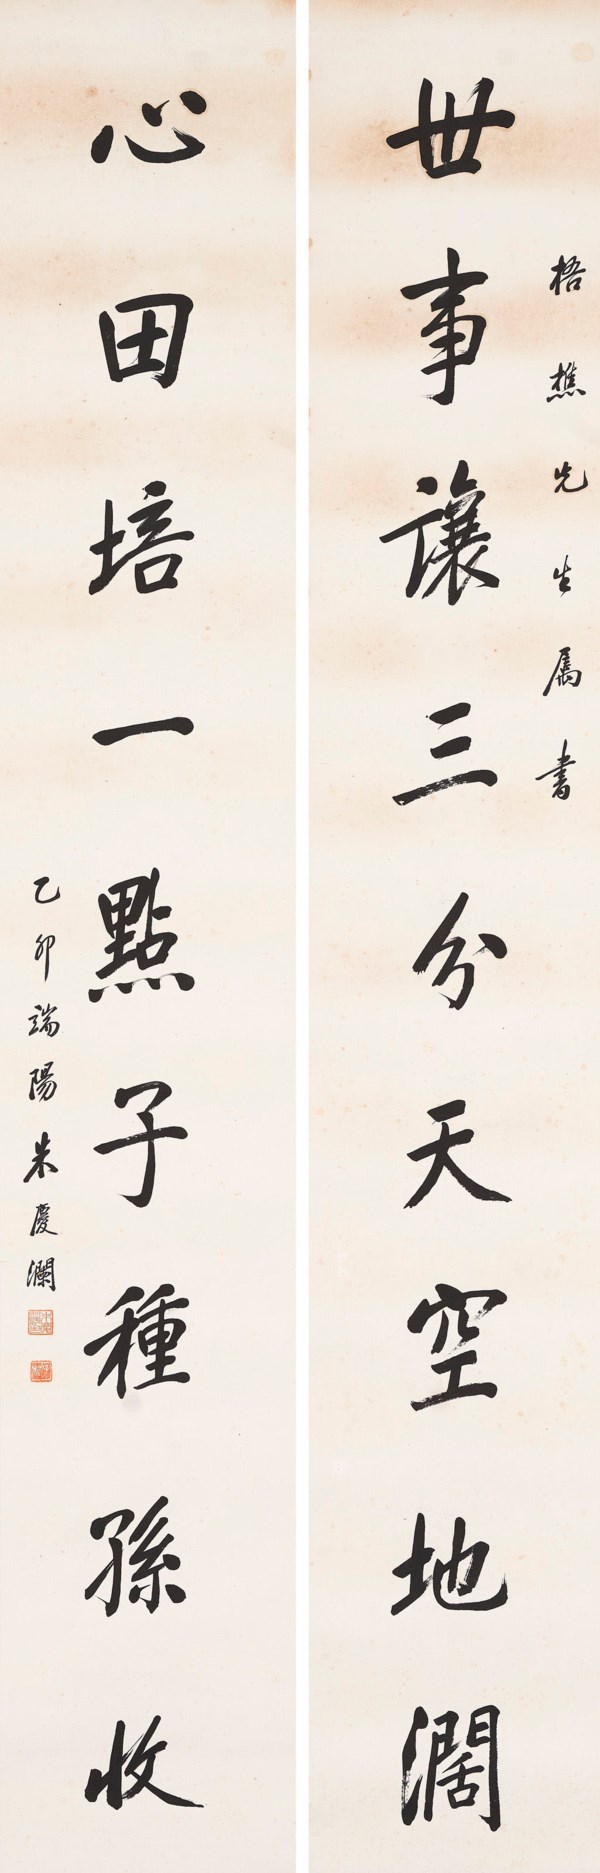 梧樵先生属書
世事讓三分天空地濶
心田培一點子種孫收
乙卯端陽朱慶瀾